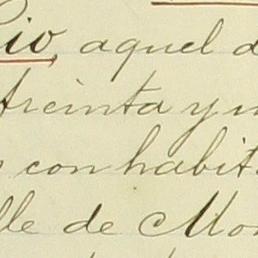 Pio, aquel d
treinta y n
con habit
lle de Mo